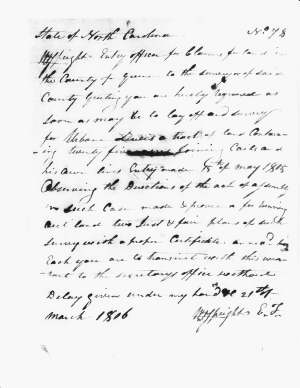 State of North Carolina No 78
Wm Speight Entry officer for Claims for land in
the County of Green to the surveyor of said
County Greeting you are hereby required as
soon as may be to lay off and survey
for Urbana Lewis a tract of land Contain-
ing twenty five Joining Carls and
his own lines Entry made 8th of may 1805
Observing the Directions of the act of assembly
in such Case made & provd for surveying
said land two Just & fair plans of such
survey with a proper Certificate annexed to
Each you are to transmit with this war-
rant to the secretarys office without
Delay given under my hand 21st
march 1806 Wm Speight E. T.